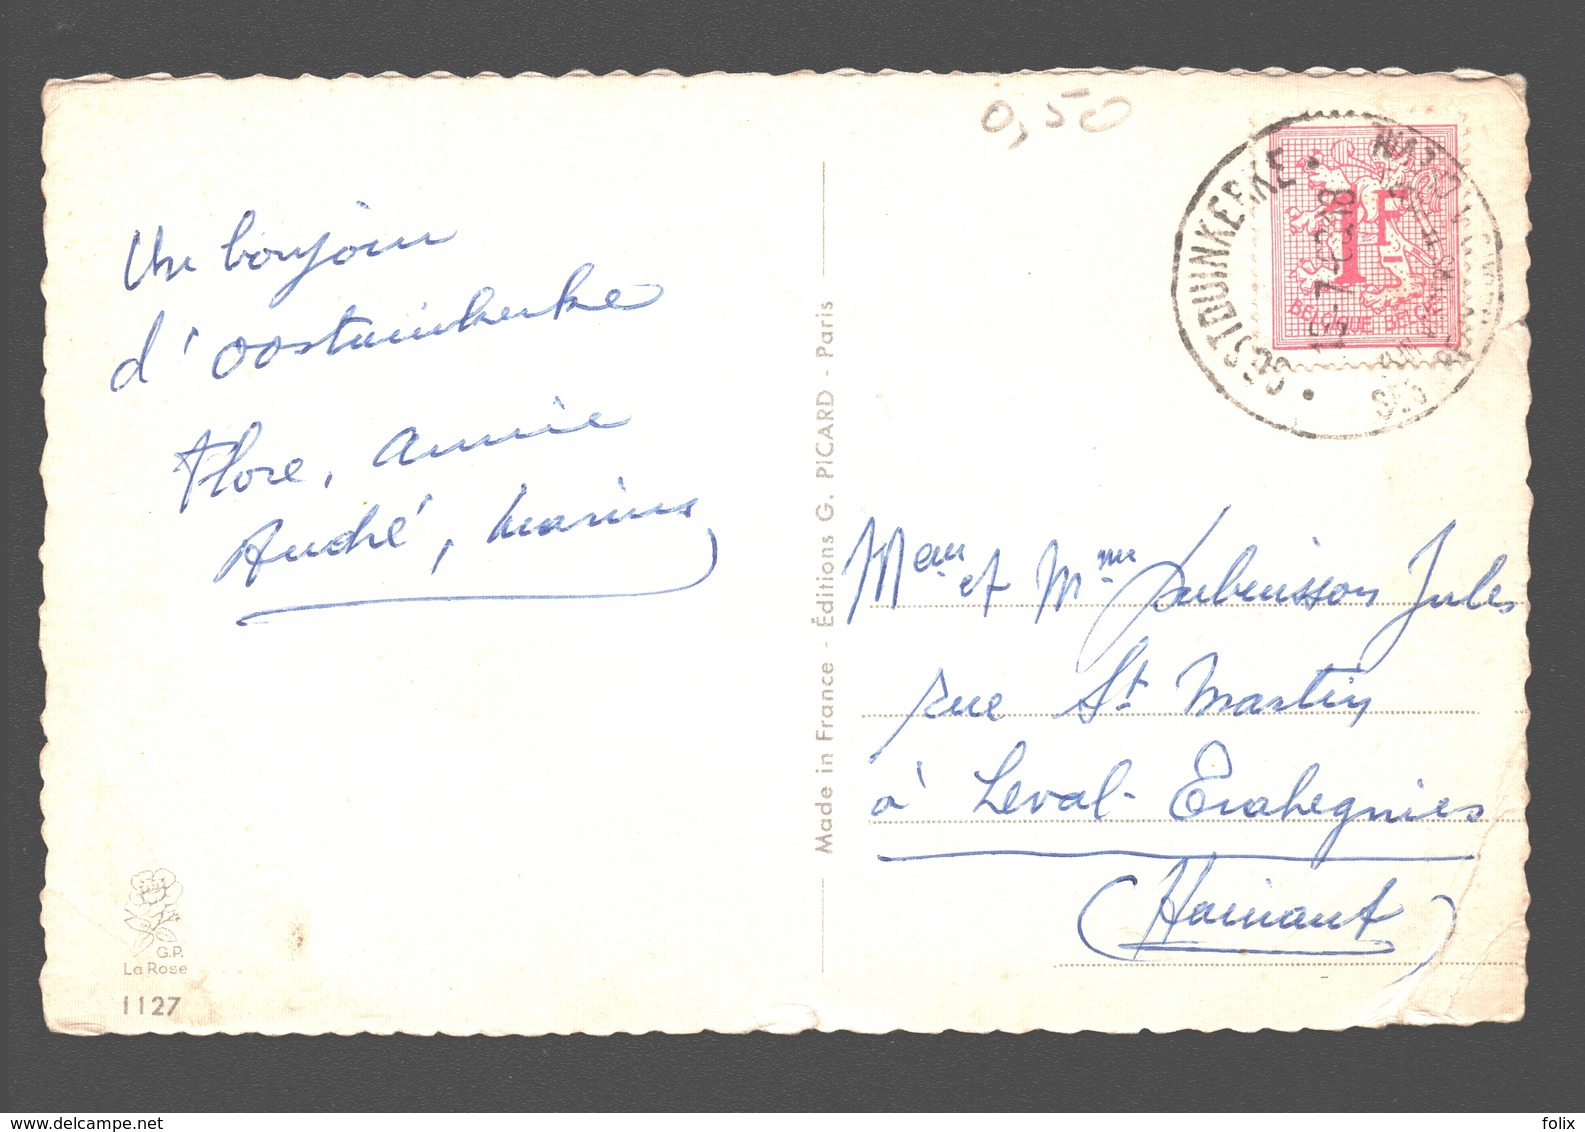 0,50
Un bonjour
d'oostduinkerke
Flore, Annie
André, Marius
G.P.
La Rose
1127
Made in France - Éditions G. PICARD - Paris
OOSTDUINKERKE
1F
BELGIQUE BELGIE
et Mme Dubuisson Jules
rue St Martin
à Leval-Trahegnies
(Hainaut)
www.delcampe.net
folix